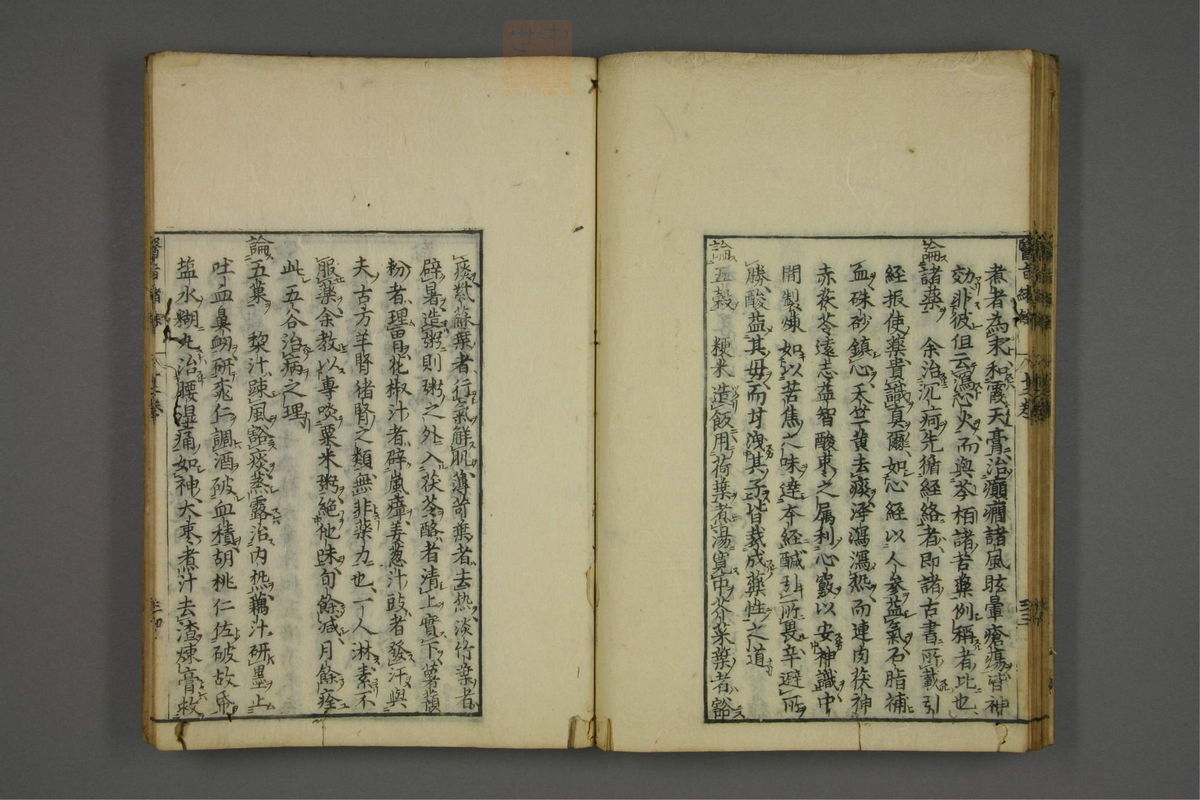 煮者為末和霞天膏治癲癇諸風眩暈瘡瘍皆神
効非彼但云瀉心火而與芩栢諸苦藥例稱者比也
論諸藥 余治沉痾先循經絡者即諸古書所載引
經报使藥貴識真爾如心經以人參益氣石脂補
血硃砂鎮心天竺黄去痰浮瀉瀉熱而連肉茯神
赤茯苓遠志益智酸棗之属利心竅以安神識中
間製煉如以苦焦之味達本經鹹引所畏辛避所
勝酸益其毋而甘洩其子皆裁成藥性之道
論五穀 粳米造飯用荷葉煮湯寬中芥菜葉者豁
痰紫蘇葉者行氣解肌薄荷葉者去热淡竹葉者
辟暑造粥則粥之外入茯苓酪者清上實下薯蕷
粉者理胃花椒汁者辟嵐瘴姜葱汁豉者發汗與
夫古方羊腎猪腎之類無非藥力也一人淋素不
服藥余教以專啖粟米粥絶他味旬餘减月餘痊
此五谷治病之理
論五菓 棃汁踈風豁痰蒸露治内热藕汁研墨止
吐血鼻衂研桃仁調酒破血積胡桃仁佐破故帋
塩水糊丸治腰湿痛如神大棗煮汁去渣煉膏救